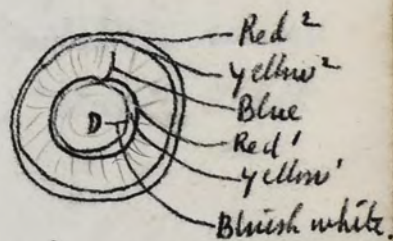 Red ²
Yellow ²
Blue
D
Red '
Yellow '
Bluish white.